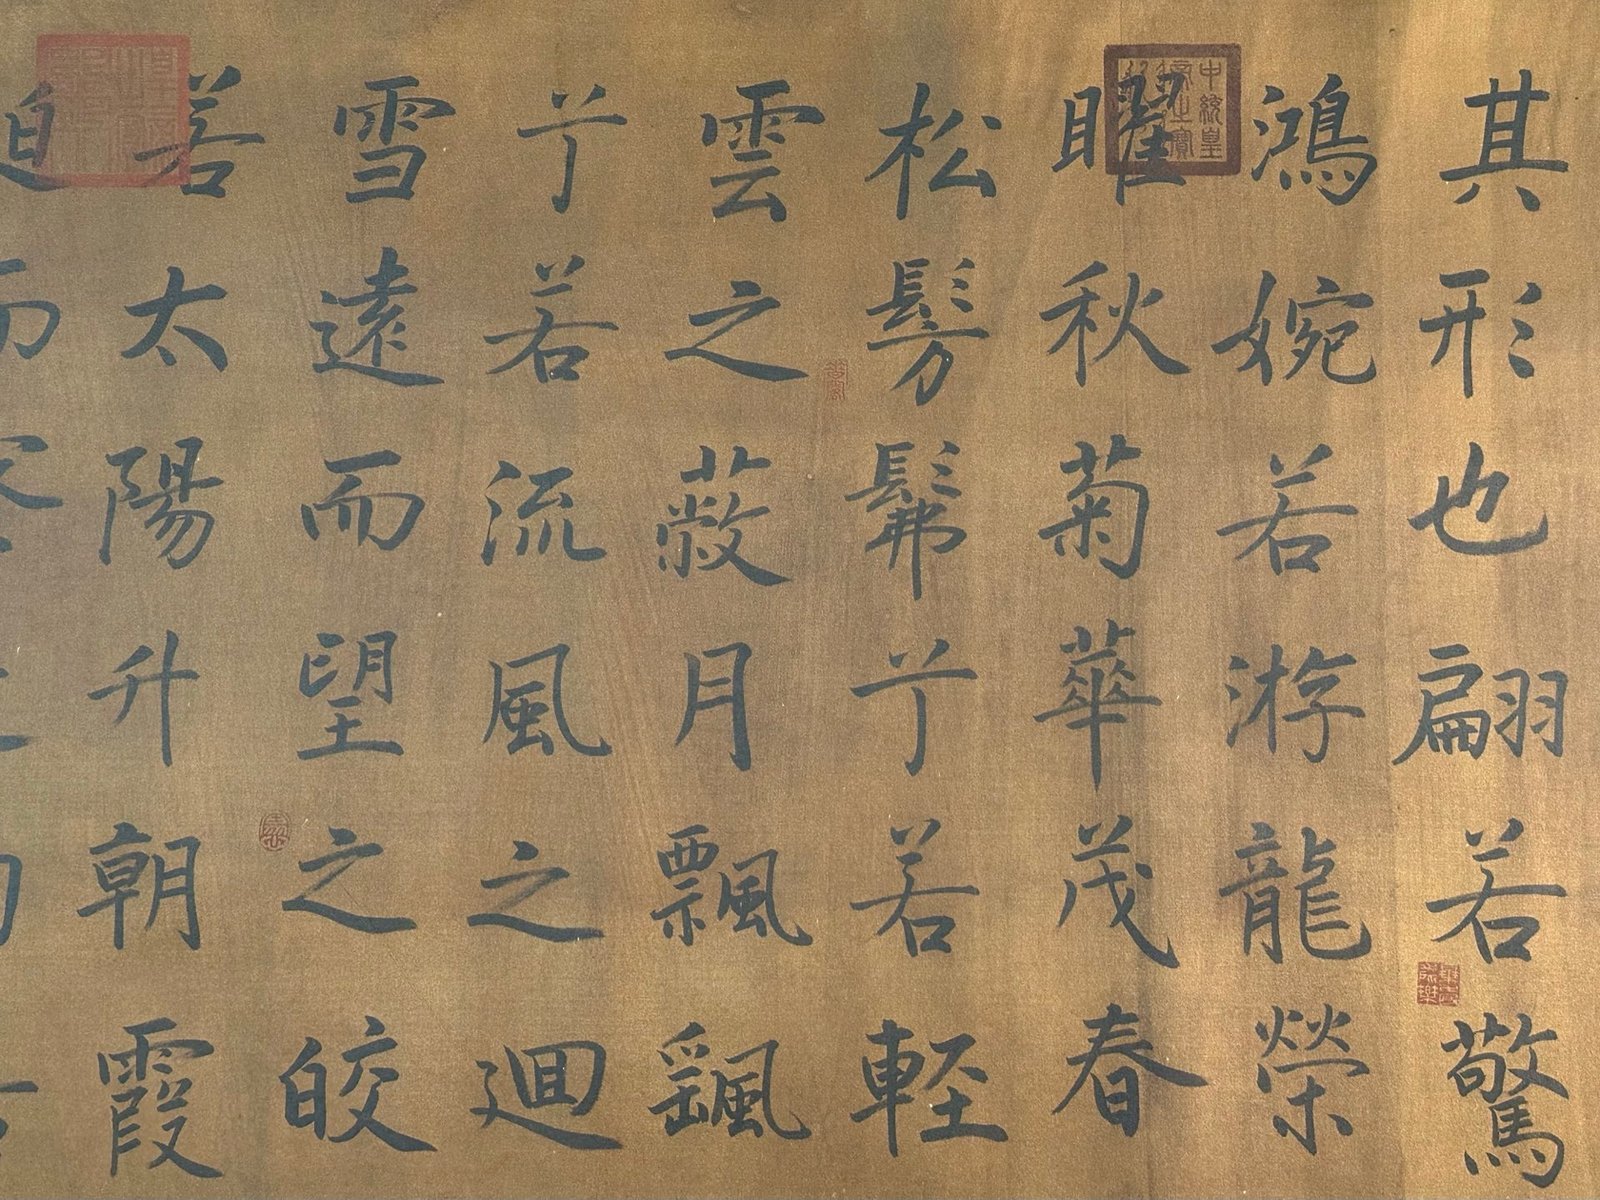 其形也翩若驚
鴻婉若游龍榮
曜秋菊華茂春
松髣髴兮若輕
雲之蔽月飄飖
兮若流風之迴
雪遠而望之皎
若太陽升朝霞
迫而察之